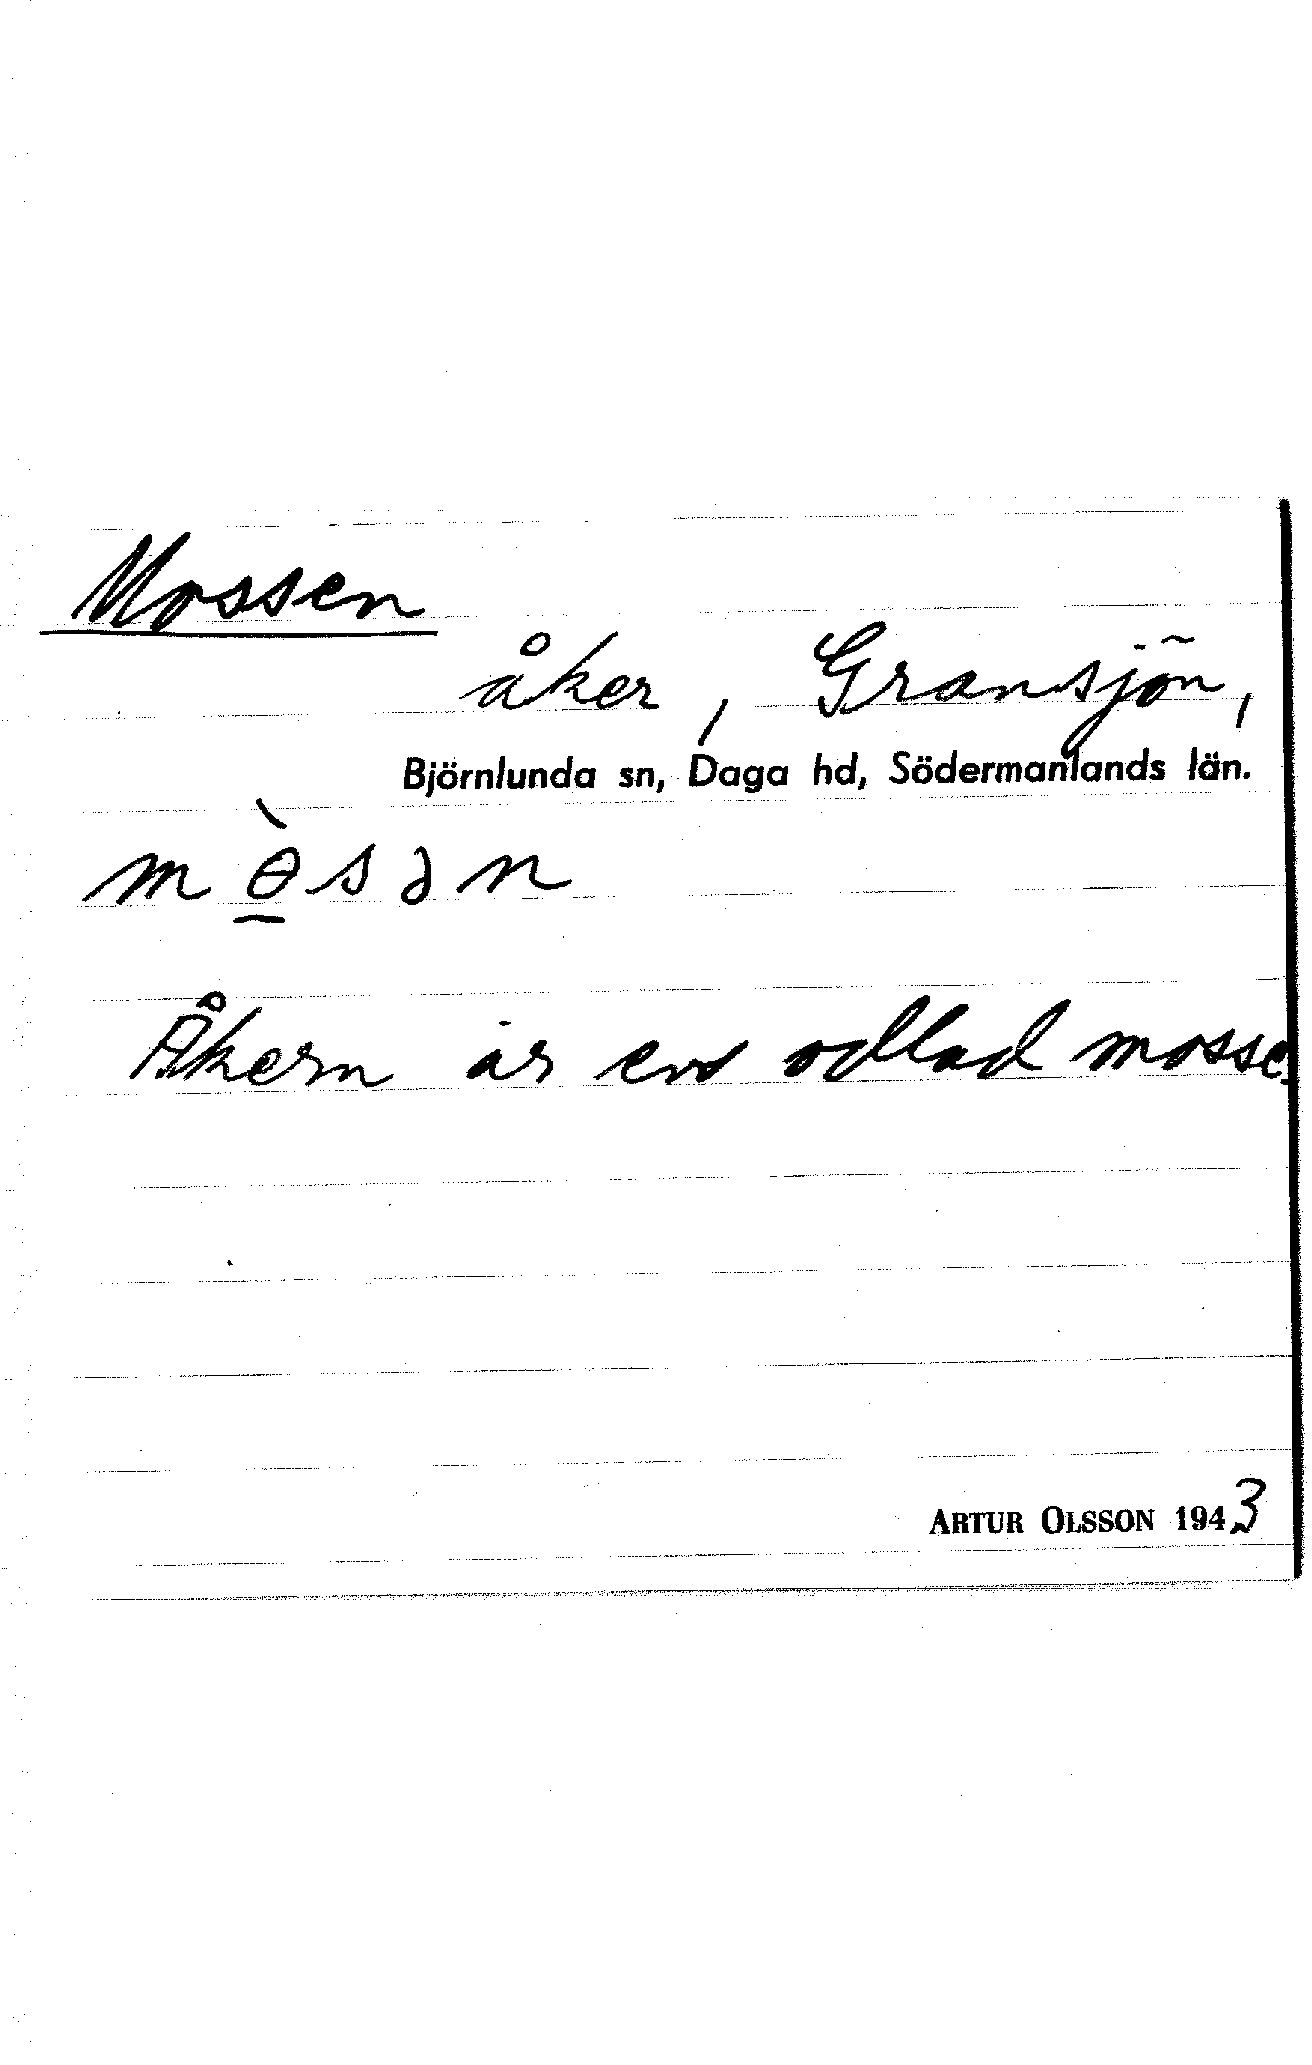 Mossen
åker, Gransjön,
Björnlunda sn, Daga hd, Södermanlands län.
mɵ̱̀sən
Åkern är en odlad mosse.
ARTUR OLSSON 1943